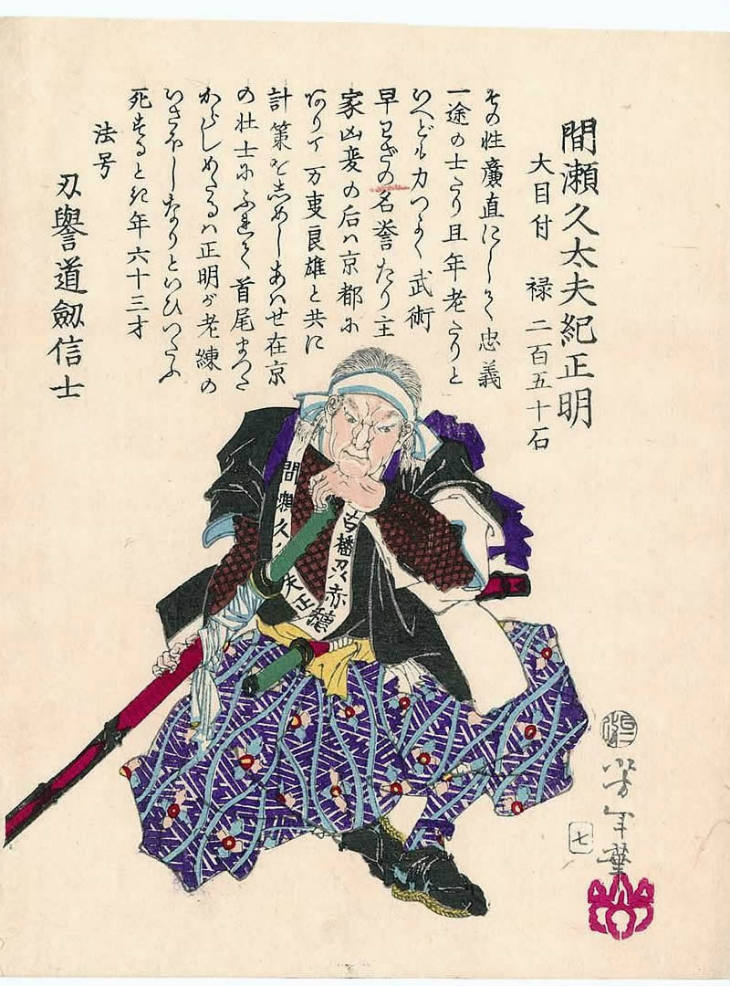 間瀬久太夫紀正明
大目付　禄二百五十石
その性廉直にしく忠義
一途の士たり且年老たりと
いへども力つよく武術
早わざの名誉たり主
家凶変の后ハ京都に
ありて万事良雄と共に
計策をしめしあハせ在京
の壮士にふれて首尾まつた
からしめたるハ正明が老練の
いさほしなりといひつたふ
死するとき年六十三才
法号
刃譽道劔信士
間瀬久
夫正
芳年筆
七